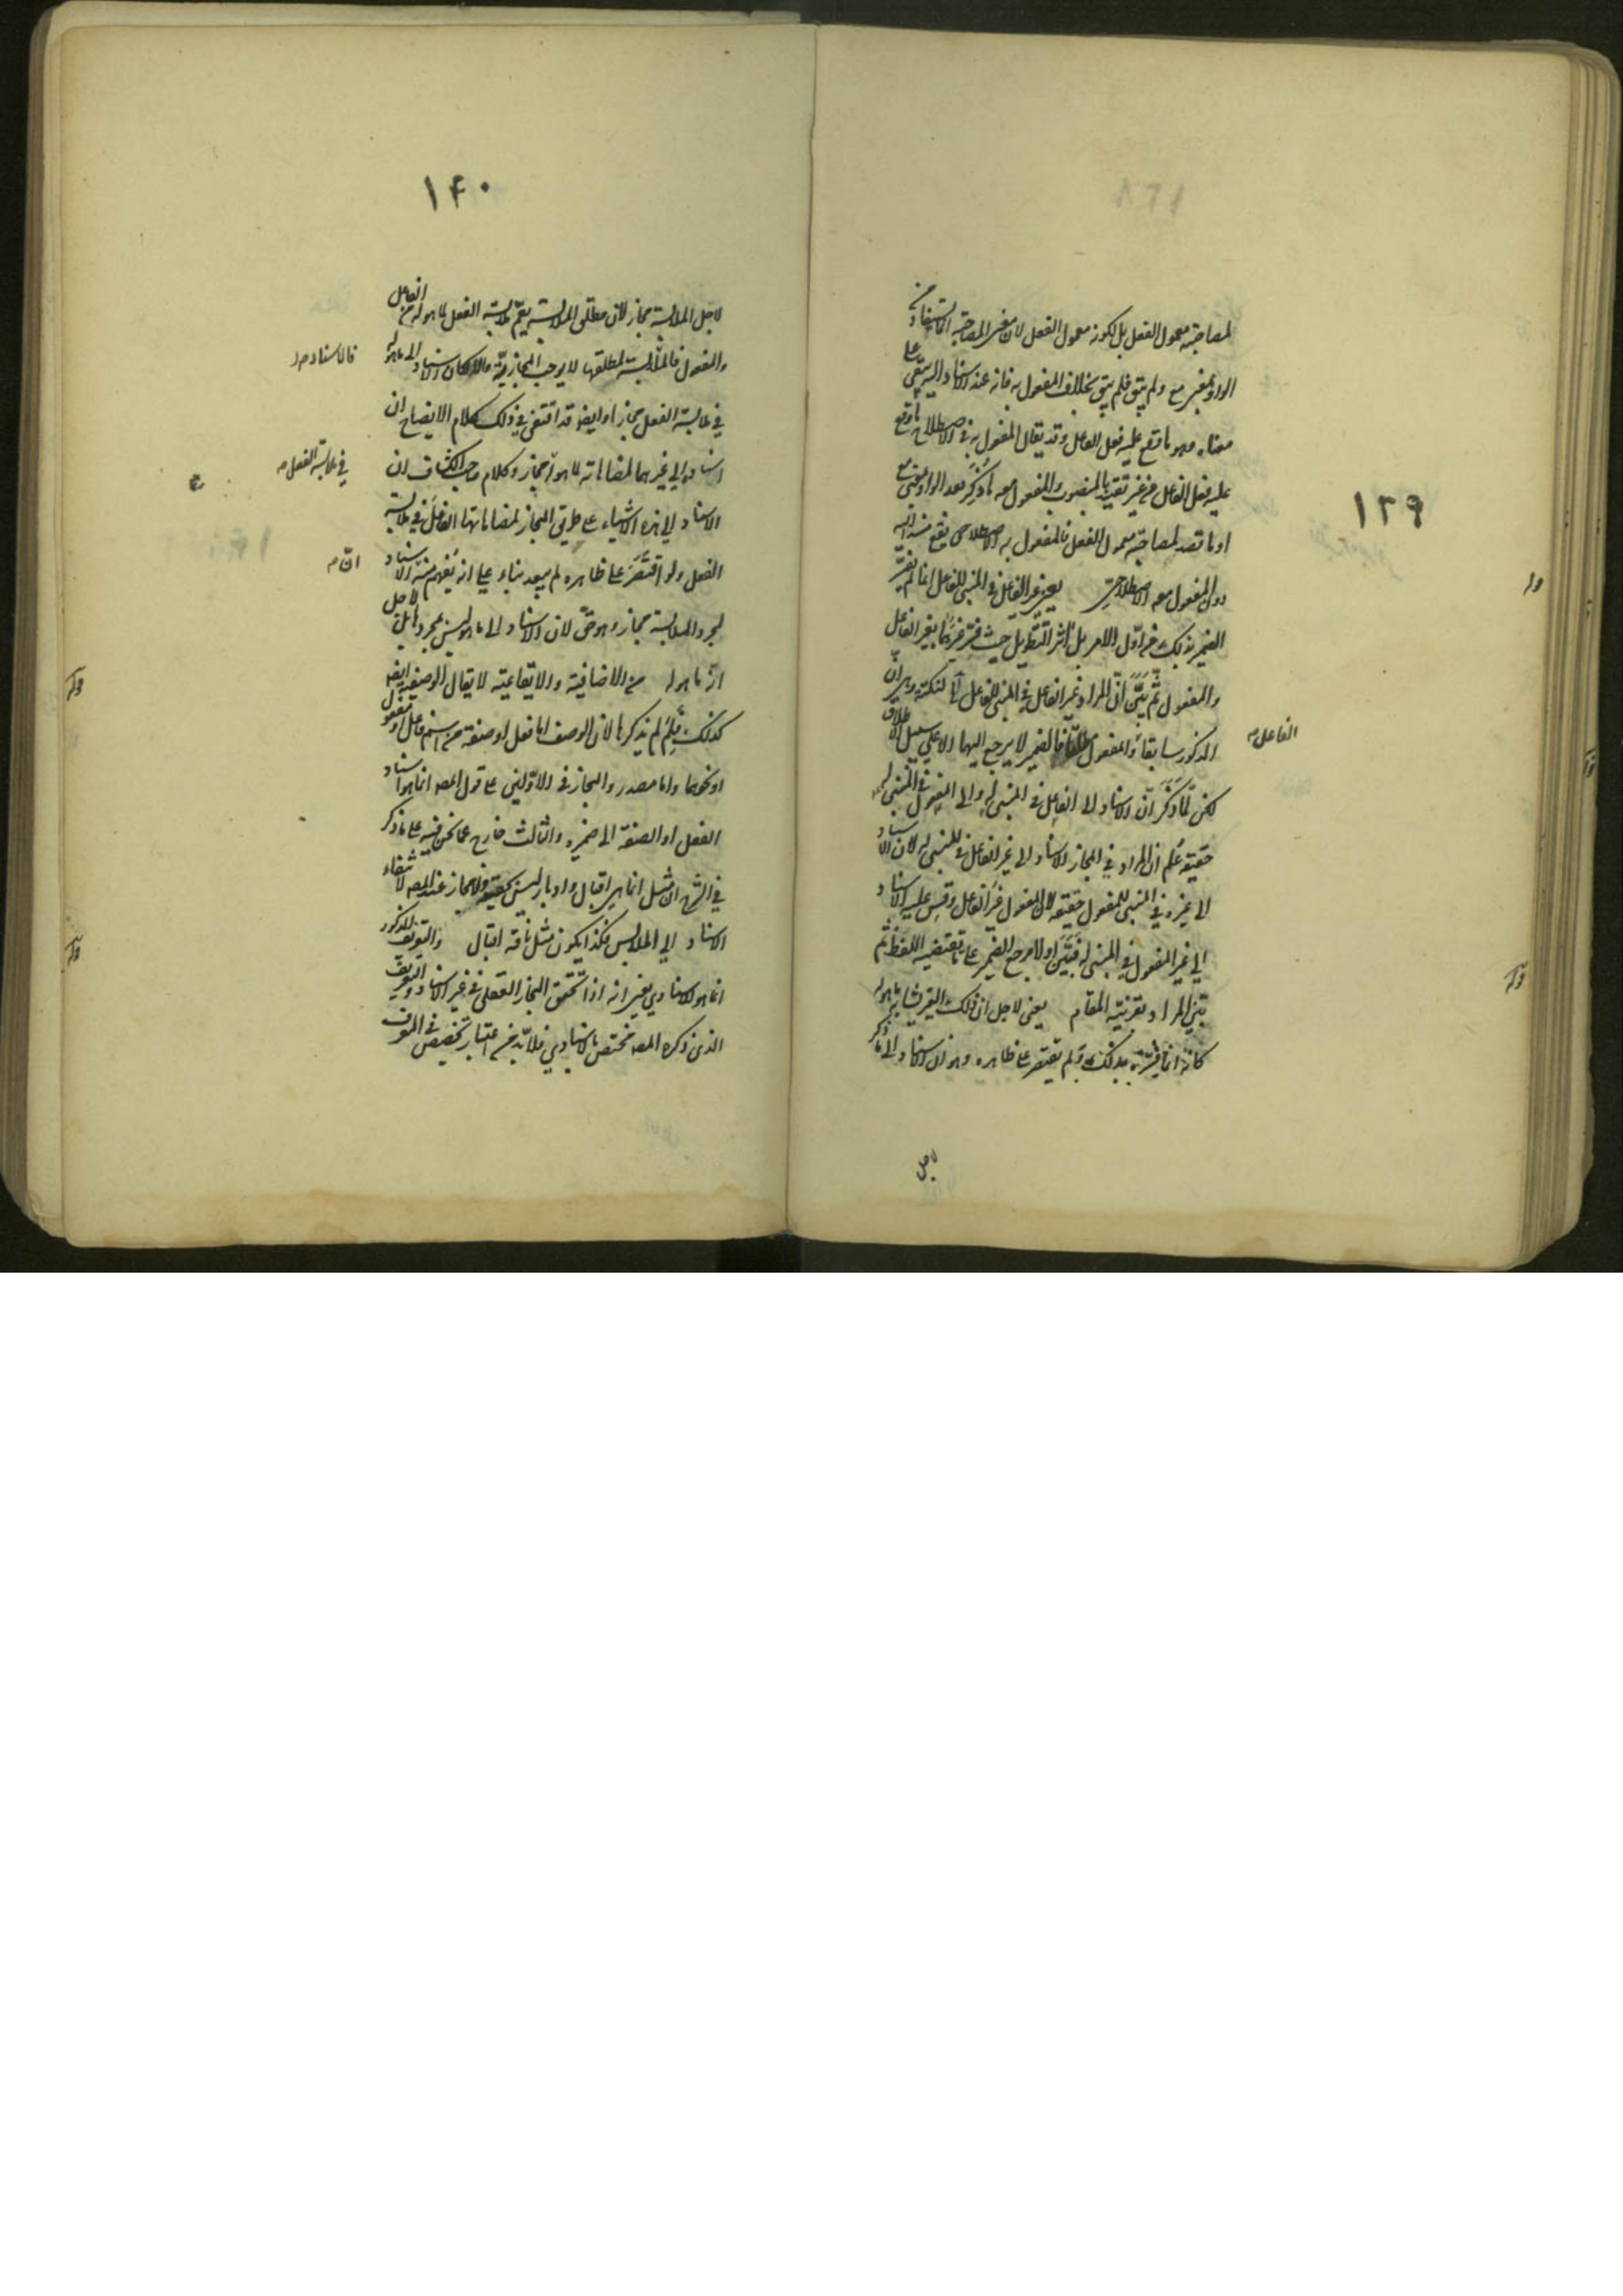 ١٣٩
لمصاحبة معمول الفعل بل لكونه معمول الفعل لان معنى المصاحبة انما يستفاد من
الواو بمعنى مع ولم يبق فلم يبق بخلاف المفعول به فانه عند الاسناد اليه يبقى على
معناه وهو ما وقع عليه فعل الفاعل وقد يقال المفعول به في الاصطلاح ما وقع
عليه فعل الفاعل من غير تقييد بالمنصوب والمفعول معه ما ذكر بعد الواو بمعنى مع
او ما قصد لمصاحبة معمول الفعل فالمفعول به الاصطلاحي يقع مسندا اليه
دون المفعول معه الاصطلاحي يعني غير الفاعل في المبني للفاعل انما لم يفسر
الضمير بذلك من اول الامر بل آثر التطويل حيث فسر غيرهما بغير الفاعل
والمفعول ثم بين ان المراد غير الفاعل في المبني للفاعل لنكتة وهي ان
المذكور سابقا والمفعول فالضمير لا يرجع اليهما الا على سبيل الاطلاق
الفاعل
لكن لما ذكر ان الاسناد الى الفاعل في المبني له والى المفعول في المبني له
حقيقة علم ان المراد في المجاز الاسناد الى غير الفاعل في المبني له لان الاسناد
الى غيره في المبني للمفعول حقيقة لان المفعول غير الفاعل وقس عليه الاسناد
الى غير المفعول في المبني له فبين اولا مرجع الضمير على ما يقتضيه اللفظ ثم
بين المراد بقرينة المقام يعني لاجل ان ذلك الغير يشابه ما هو له
كانه انما فسره بذلك ولم يقتصر على ظاهره وهو ان الاسناد الى ما ذكر
لاجل
١۴٠
لاجل الملابسة مجاز لان مطلق الملابسة يعم ملابسة الفعل لما هو له من الفاعل
والمفعول فالملابسة لمطلقها لا يوجب المجازية والا لكان الاسناد الى ما هو له
فالاسناد
في ملابسة الفعل مجازا وايضا قد اقتفى في ذلك كلام الايضاح ان
اسناده الى غيرهما لمضاهاته لما هو له مجاز وكلام صاحب الكشاف ان
في ملابسة الفعل
الاسناد الى هذه الاشياء على طريق المجاز لمضاهاتها الفاعل في ملابسة
الفعل ولو اقتصر على ظاهره لم يبعد بناء على انه يفهم منه ان الاسناد
لمجرد الملابسة مجاز وهو حق لان الاسناد الى ما هو له ليس بمجرد لاجل
انه ما هو له من الاضافية والايقاعية لا يقال الوصفية ايضا
كذلك فلم لم يذكرها لان الوصف اما فعل او صفة من اسم فاعل او مفعول
او نحوهما واما مصدر والمجاز في الاولين على قول المصه انما هو اسناد
الفعل او الصفة الى ضميره والثالث خارج عما نحن فيه على ما ذكر
في الشرح ان مثل انما هي اقبال وادبار ليس بحقيقة ولا مجاز عند المصه لانتفاء
الاسناد الى الملابس فكذا يكون مثل ناقة اقبال والتعريف المذكور
انما هو للاسنادي يعني انه اذا تحقق المجاز العقلي في غير الاسناد والتعريف
الذي ذكره المصه مختص بالاسنادي فلا بد من اعتبار تخصيص في المعرف